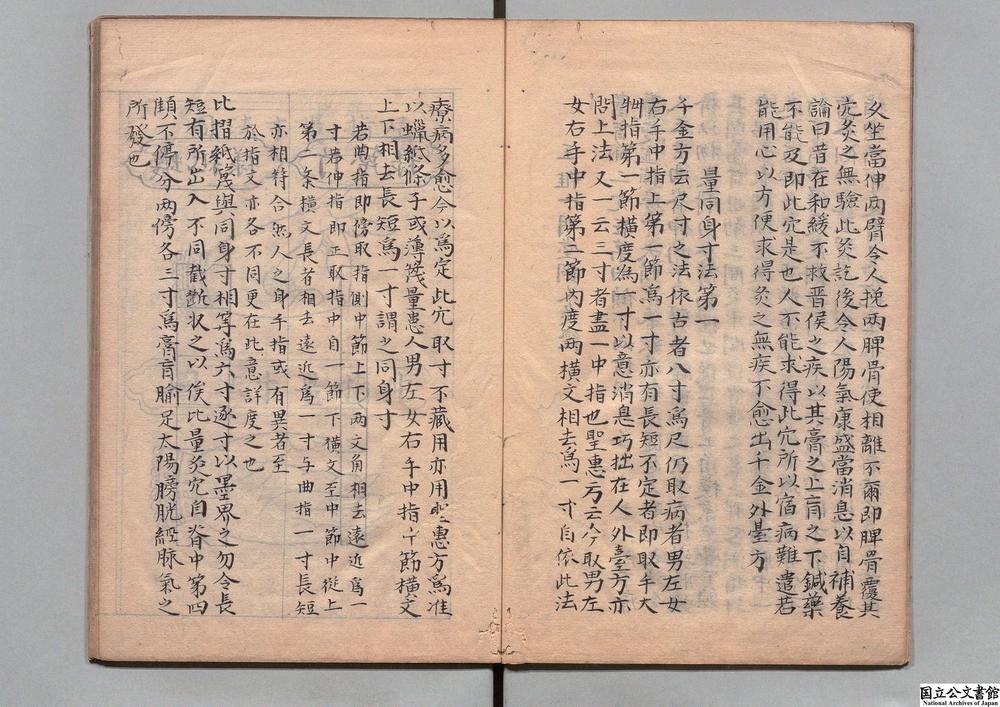 又坐當伸兩臂令人挽兩胛骨使相離不爾即胛骨覆其
穴灸之無驗此灸訖後令人陽氣康盛當消息以自補養
論曰昔在和緩不救晉侯之疾以其膏之上肓之下鍼藥
不能及即此穴是也人不能求得此穴所以宿病難遣若
能用心以方便求得灸之無疾不愈出千金外臺方
量同身寸法第一
千金方云尺寸之法依古者八寸爲尺仍取病者男左女
右手中指上第一節爲一寸亦有長短不定者即取手大
拇指第一節橫度為一寸以意消息巧拙在人外臺方亦
問上法又一云三寸者盡一中指也聖惠方云今取男左
女右手中指第二節內度兩橫文相去爲一寸自依此法
療病多愈今以爲定此穴取寸不藏用亦用聖惠方爲准
以蠟紙條子或薄篾量患人男左女右手中指中節橫文
上下相去長短爲一寸謂之同身寸
若曲指即傍取指側中節上下兩文角相去遠近爲一
寸若伸指即正取指中自一節下橫文至中節中從上
第一条橫文長者相去遠近爲一寸与曲指一寸長短
亦相符合然人之身手指或有異者至
於指文亦各不同更在此意詳度之也
比摺紙篾與同身寸相等爲六寸逐寸以墨界之勿令長
短有所出入不同截斷收之以俟比量灸穴自脊中第四
顀不停分兩傍各三寸爲膏肓腧足太陽膀胱經脉氣之
所發也
国立公文書館
National Archives of Japan